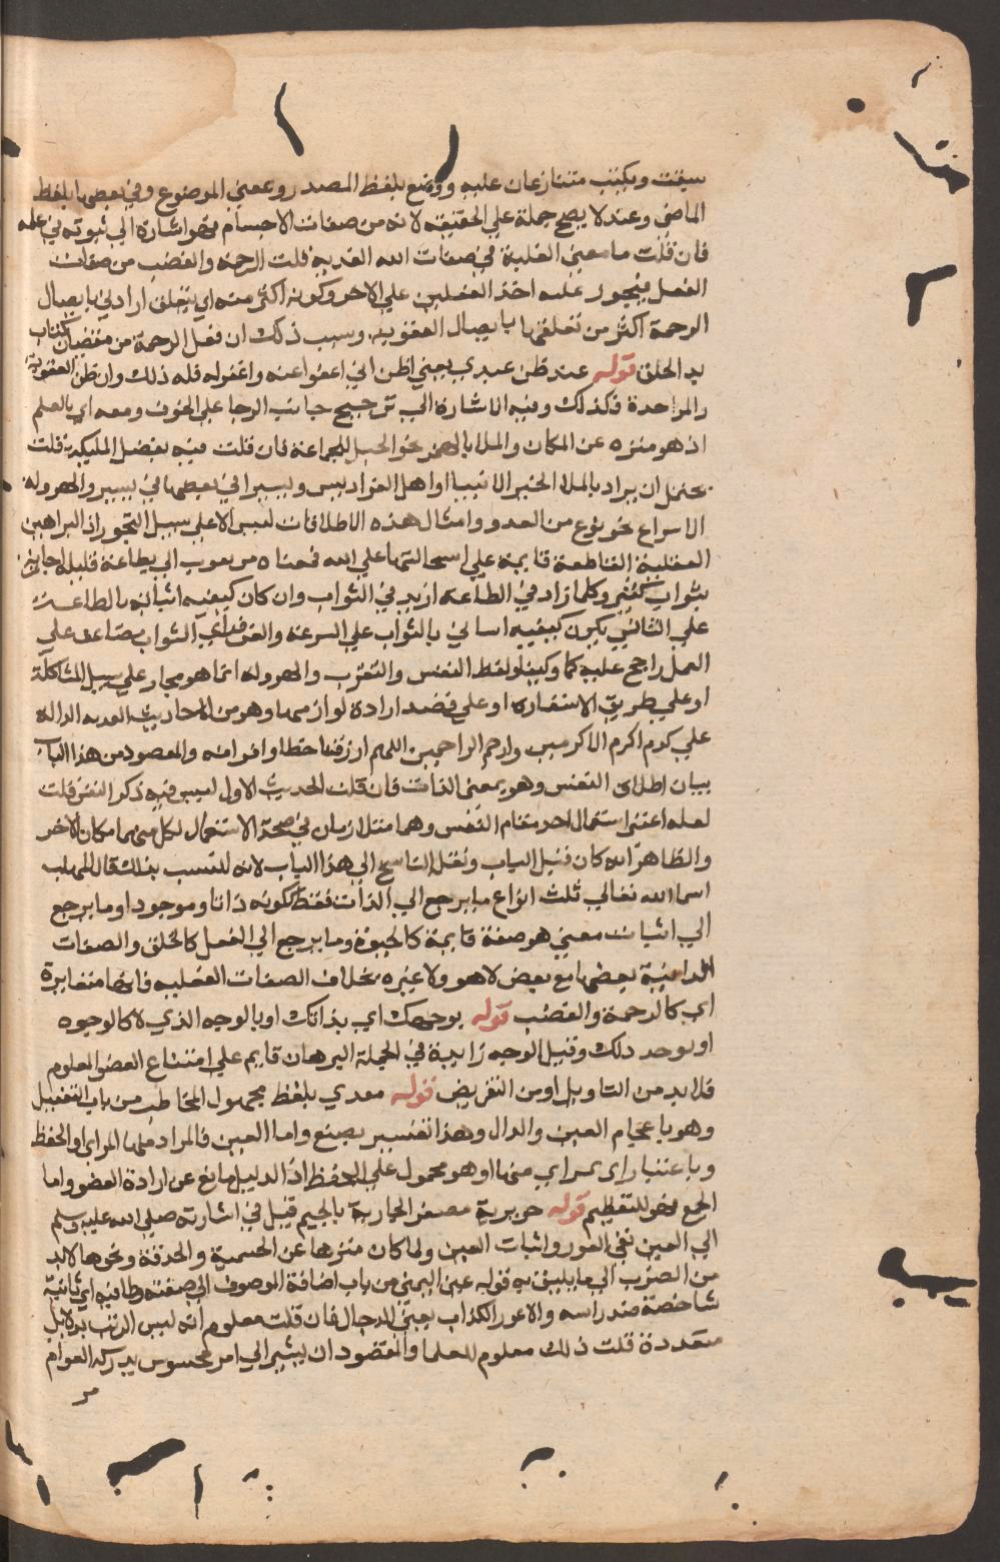 سبقت ويكتب متنازعان عليه ووضع بلفظ المصدر وبمعنى الموضوع وفي بعضها بلفظ
الماضي وعند لا يصح حمله على الحقيقة لانه من صفات الاجسام فهو اشارة الى ثبوته في علمه
فان قلت ما معنى الغلبة في صفات الله القديمة قلت الرحمة والغضب من صفات
الفعل فيجوز غلبة احد الفعلين على الاخر وكونه اكثر منه اي تعلق ارادتي بايصال
الرحمة اكثر من تعلقها بايصال العقوبة وسبب ذلك ان فعل الرحمة من مقتضيات
بد الخلق قوله عند ظن عبدي يعني اظن اني اعفوا عنه واغفر له فله ذلك وان ظن العقوبة
والمواخدة فكذلك وفيه الاشارة الى ترجيح جانب الرجا على الخوف ومعه اي بالعلم
اذ هو منزه عن المكان والملا بالهمز نحو الجبل الجماعة فان قلت فيه تفضل المليكة قلت
يحتمل ان يراد بالملا الخير الانبيا او اهل الفراديس ويسير اني بعضها في بسير والهرولة
الاسراع نحو نوع من العدو وامثال هذه الاطلاقات ليس الا على سبيل التجوز اذ البراهين
العقلية القاطعة قايمة على استحالتها على الله فمعناه من تقرب الي بطاعة قليلة اجازيه
بثواب كثير وكلما زاد في الطاعة ازيد في الثواب وان كان كيفية اتيانه بالطاعة
على التاني يكون كيفية اتياني بالثواب على السرعة والغرض ان الثواب مضاعف على
العمل راجح عليه كما وكيفا ولفظ النفس والتقرب والهرولة انما هو مجاز على سبيل المشاكلة
او على طريق الاستعارة او على قصد ارادة لوازمها وهو من الاحاديث القدسية الدالة
على كرم اكرم الاكرمين وارحم الراحمين اللهم ارزقنا حظا وافرا منه والمقصود من هذا الباب
بيان اطلاق النفس وهو بمعنى الذات فان قلت الحديث الاول ليس فيه ذكر النفس قلت
لعله اعتبر استعمال احد مقام النفس وهما متلازمان في صحة الاستعمال لكل منهما مكان الاخر
والظاهر انه كان قبل الباب ونقل الناسخ الى هذا الباب لانه للنسب بذلك قال المهلب
اسما الله تعالى ثلث انواع ما يرجع الى الذات فقط ككونه ذاتا وموجودا وما يرجع
الى اثبات معنى هو صفة قايمة كالحيوة وما يرجع الى الفعل كالخلق والصفات
الذاتية بعضها مع بعض لا هو ولا غيره بخلاف الصفات الفعلية فانها متغايرة
اي كالرحمة والغضب قوله بوجهك اي بذاتك او بالوجه الذي لا كالوجوه
او بوجودك وقيل الوجه زايدة وفي الجملة البرهان قايم على امتناع العضو المعلوم
فلا بد من التاويل او من التفويض قوله تغذي بلفظ مجهول المخاطب من باب التفعيل
وهو باعجام العين والذال وهذا تفسير تصنع واما العين فالمراد منها المراى او الحفظ
وباعيننا اى بمراي منها او هو محمول على الحفظ اذ الدليل مانع عن ارادة العضو واما
الجمع فهو للتعظيم قوله جويرية مصغر الجارية بالجيم قيل في اشارته صلى الله عليه وسلم
الى العين نفي العور واثبات العين ولما كان منزها عن الجسمية والحدقة ونحوها لابد
من الصرف الى ما يليق به قوله عين اليمنى من باب اضافة الموصوف الى صفته وطافية اي ناتية
شاخصة ضد راسه والاعور الكذاب يعني الدجال فان قلت معلوم انه ليس الرب بدلايل
متعددة قلت ذلك معلوم للعلما والمقصود ان يشير الى امر محسوس يدركه العوام